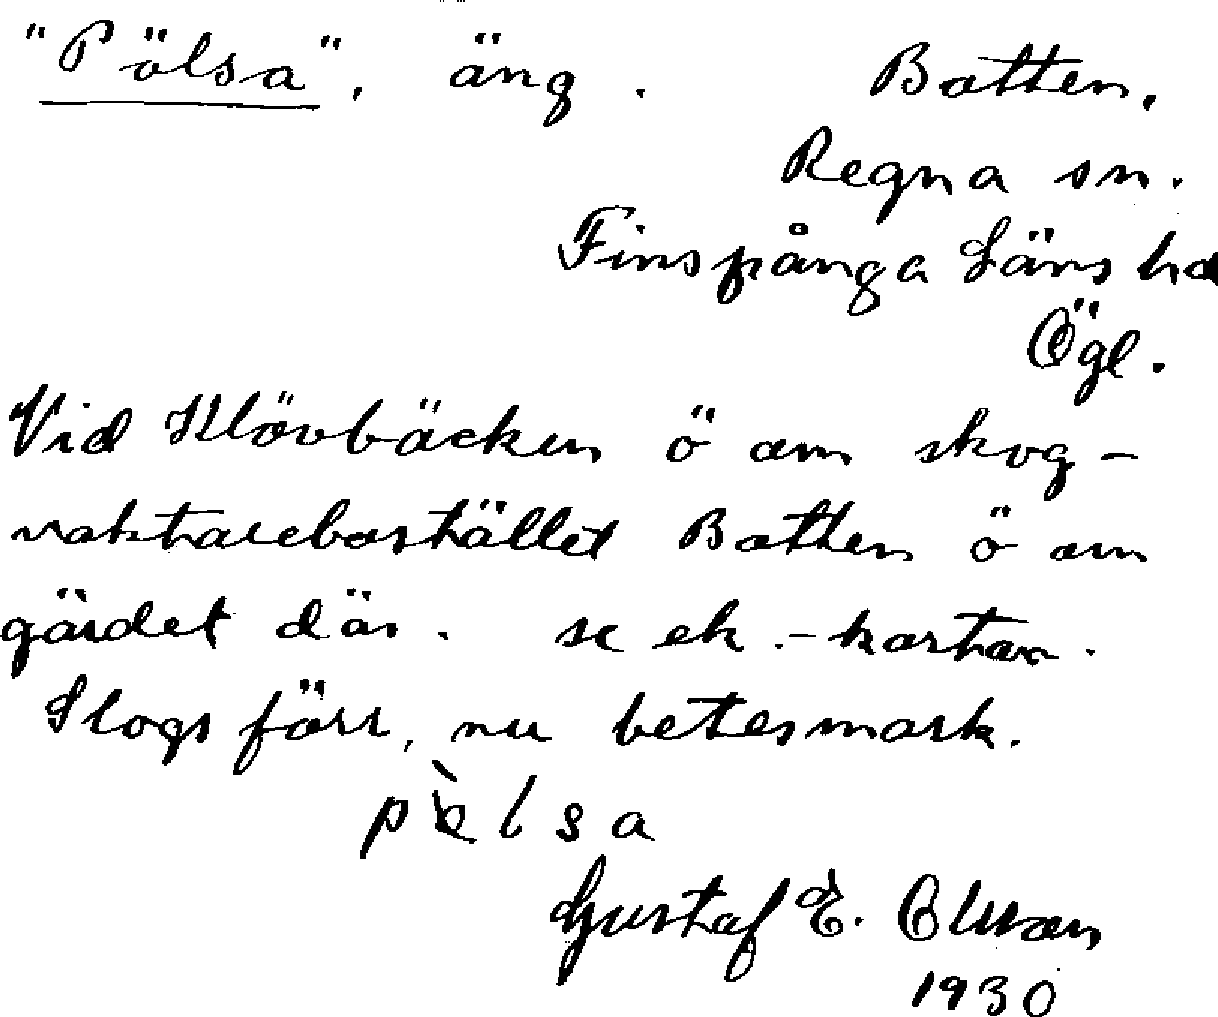 "Pölsa", äng. Botten,
Regna sn.
Finspånga Läns hd
Ögl.
Vid Klövbäcken ö om skog-
vaktarebostället Botten ö om
gärdet där. se ek.-kartan.
Slogs förr, nu betesmark.
lsa
Gustaf E. Olsson
1930